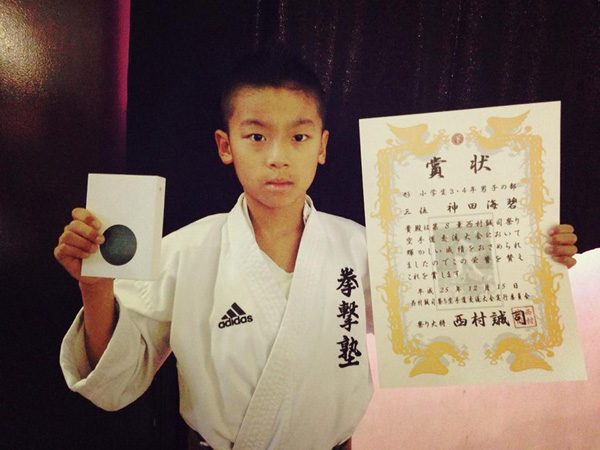 賞状
形 小学生3・4年男子の部
三位 神田海碧
貴殿は第8章西村誠司祭り
空手道交流大会において
輝かしい成績をおさめられ
ましたのでこの栄誉を讃え
これを賞します
平成25年12月15日
西村誠司祭り空手道交流大会実行委員会
祭り大将 西村誠司
adidas
拳撃塾